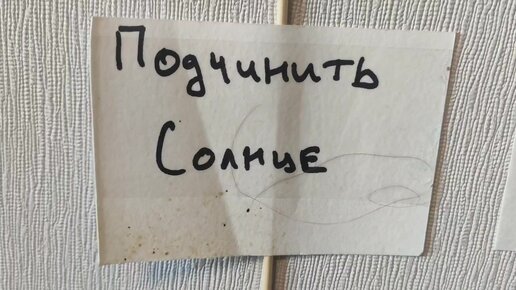 Подчинить
Солнце